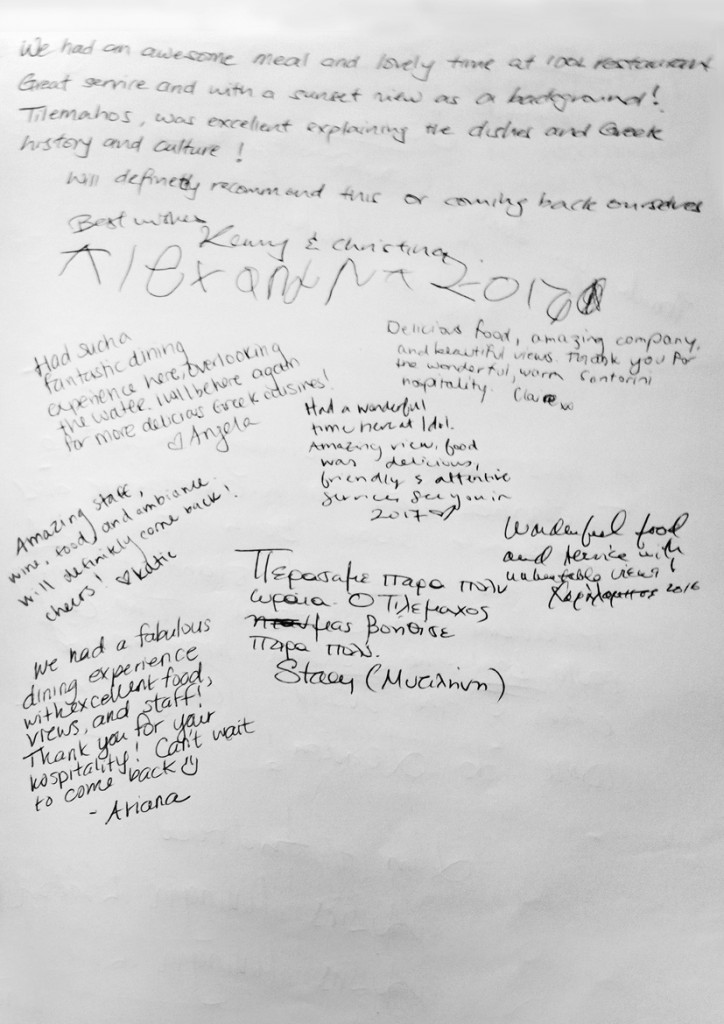 We had an awesome meal and lovely time at idol restaurant
Great service and with a sunset view as a background!
Tilemahos, was excellent explaining the dishes and Greek
history and culture!
Will definetly recommend this or coming back ourselves
Best wishes
Kenny & Christina
Alexandra 2016
Had such a
fantastic dining
experience here, overlooking
the water. I will be here again
for more delicious Greek cuisines!
♡ Angela
Delicious food, amazing company,
and beautiful views. Thank you for
the wonderful, warm Santorini
hospitality. Claire
Had a wonderful
time here at Idol.
Amazing view, food
was delicious,
friendly & attentive
service. See you in
2017 ♡
Amazing staff,
wine, food, and ambiance.
will definitely come back!
cheers! ♡ Katie
Wonderful food
and service with
unbeatable views!
Χαράλαμπος 2016
Περασαμε παρα πολυ
ωραια. Ο Τιλεμαχος
μας βοηθισε
παρα πολυ.
Stacy (Μυτιλήνη)
We had a fabulous
dining experience
with excellent food,
views, and staff!
Thank you for your
hospitality! Can't wait
to come back ☺
- Ariana